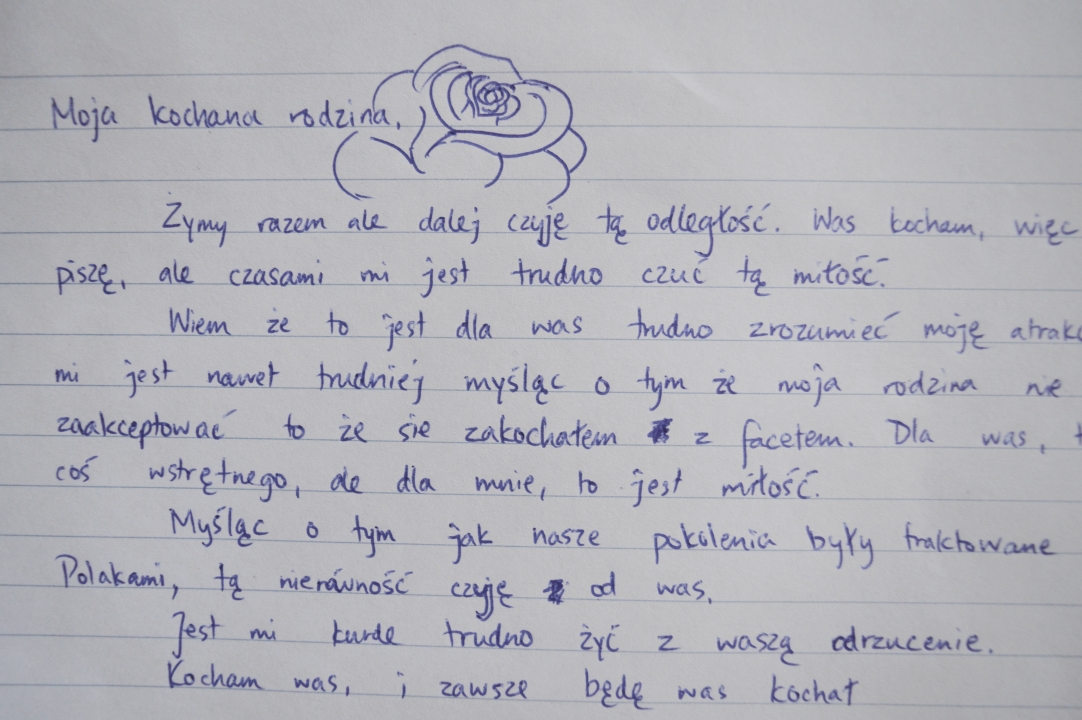 Moja kochana rodzina,
Żymy razem ale dalej czyję tą odległość. Was kocham, więc
piszę, ale czasami mi jest trudno czuć tą miłość.
Wiem że to jest dla was trudno zrozumieć moję atrakc
mi jest nawet trudniej myśląc o tym że moja rodzina nie
zaakceptować to że sie zakochałem z facetem. Dla was,
coś wstrętnego, ale dla mnie, to jest miłość.
Myśląc o tym jak nasze pokolenia były traktowane
Polakami, tą nierówność czyję od was.
Jest mi kurde trudno żyć z waszą odrzucenie.
Kocham was, i zawsze będę was kochał